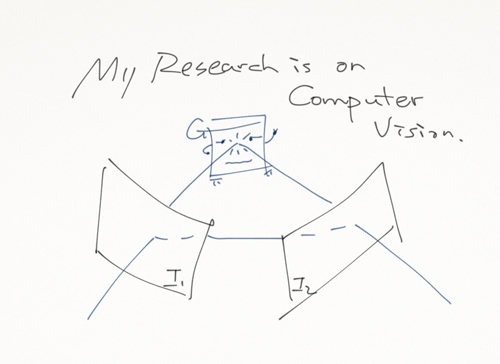 My Research is on
Computer
Vision.
I₁
I₂